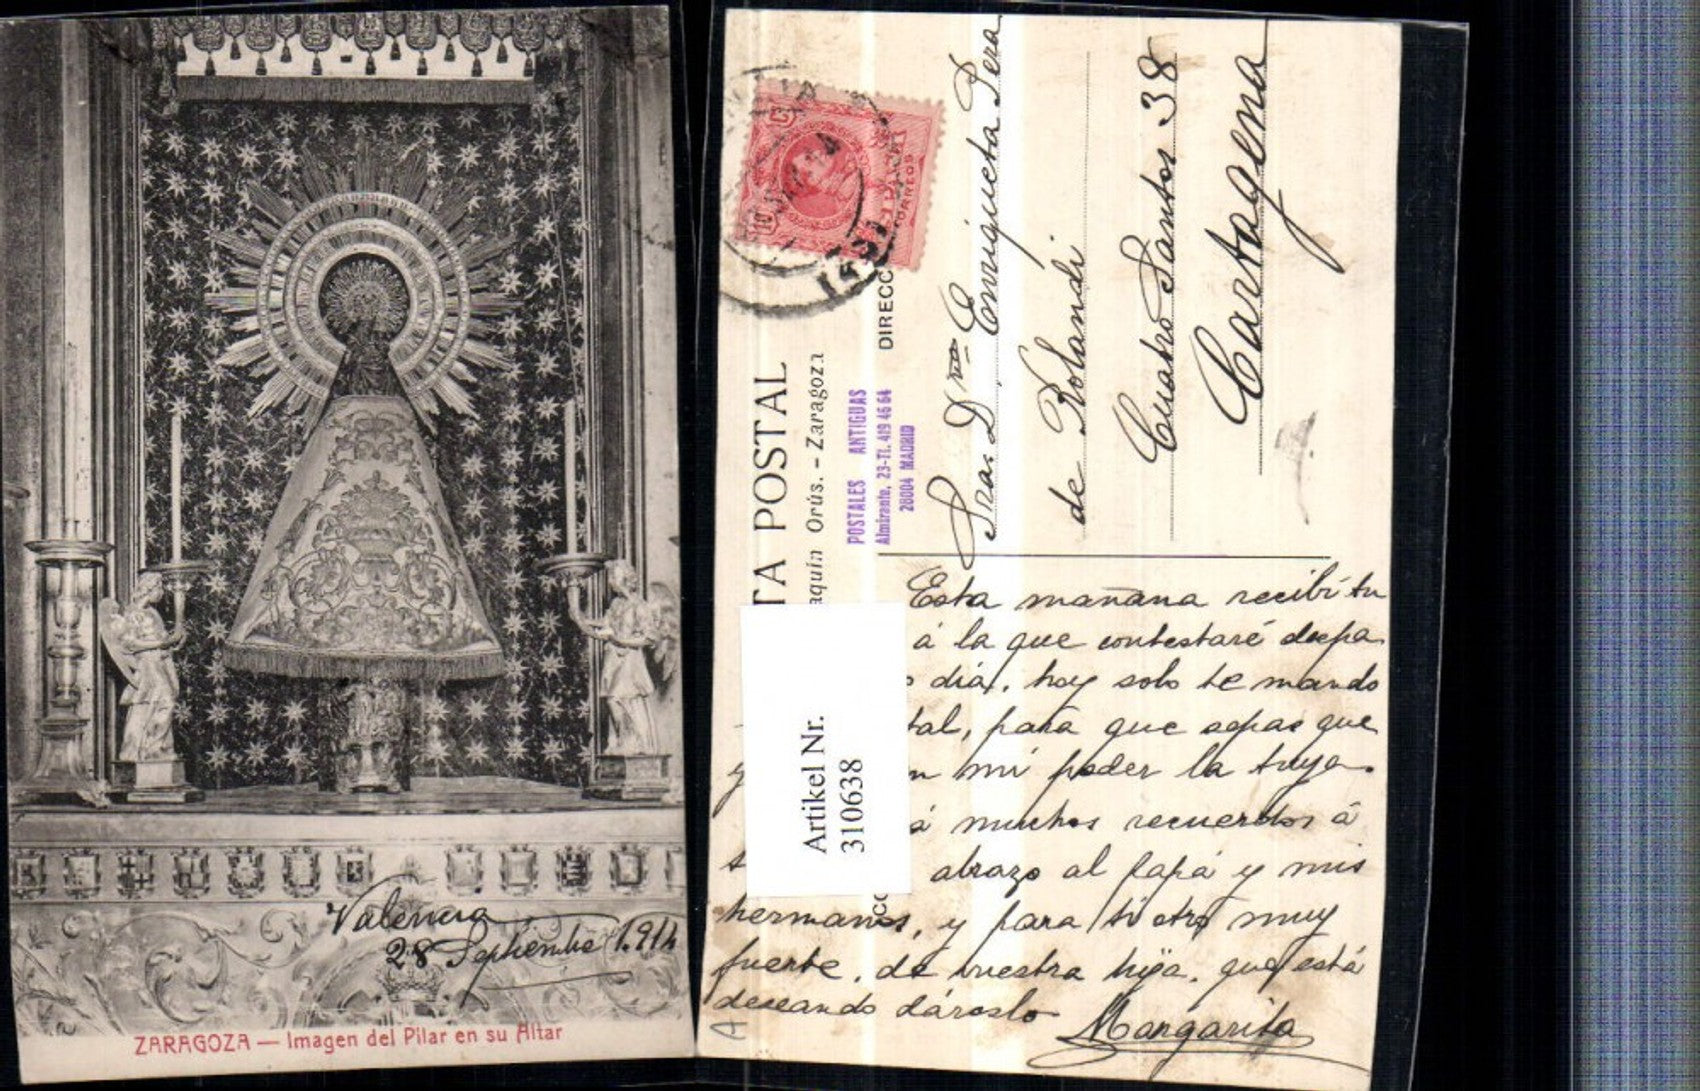 Valencia
28 Septiembre 1.914
ZARAGOZA — Imagen del Pilar en su Altar
TA POSTAL
aquín Orús. - Zaragoza
POSTALES ANTIGUAS
Almirante, 23-Tl. 419 46 64
28004 MADRID
DIRECC
CORREOS
Sra. Dña Enriqueta Pera
de Rolandi
Cuatro Santos 38
Cartagena
Artikel Nr.
310638
Esta mañana recibí tu
á la que contestaré
dia, hoy solo te mando
tal, para que sepas que
y en mi poder la tuya.
á muchos recuerdos á
abrazo al papá y mis
hermanos, y para ti otro muy
fuerte, de vuestra hija, que está
deseando dároslo
Margarita